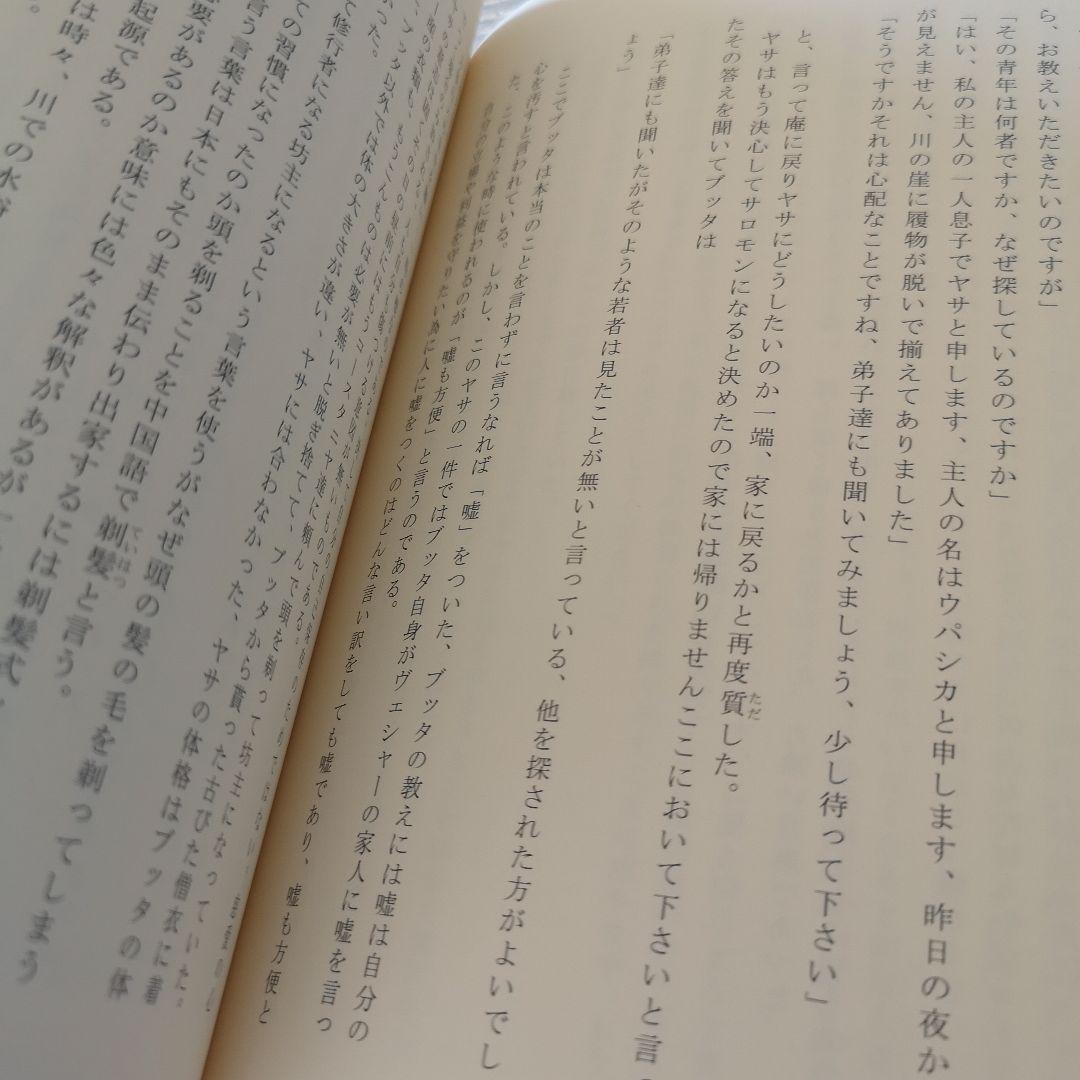 ら、お教えいただきたいのですが」
「その青年は何者ですか、なぜ探しているのですか」
「はい、私の主人の一人息子でヤサと申します、主人の名はウパシカと申します、昨日の夜か
が見えません、川の崖に履物が脱いで揃えてありました」
「そうですかそれは心配なことですね、弟子達にも聞いてみましょう、少し待って下さい」
と、言って庵に戻りヤサにどうしたいのか一端、家に戻るかと再度質ただした。
ヤサはもう決心してサロモンになると決めたので家には帰りませんここにおいて下さいと言
たその答えを聞いてブッタは
「弟子達にも聞いたがそのような若者は見たことが無いと言っている、他を探された方がよいでし
ょう」
ここでブッタは本当のことを言わずに言うなれば「嘘」をついた、ブッタの教えには嘘は自分の
心を汚すと言われている。しかし、このヤサの一件ではブッタ自身がヴェシャーの家人に嘘を言っ
た、このような時に使われるのが「嘘も方便」と言うのである。
自分の立場や利益を守りたい為に人に嘘をつくのはどんな言い訳をしても嘘であり、嘘も方便と
もうこんものは必要が無いと脱ぎ捨てて、ブッタから貰った古びた僧衣に着
った。ブッタ以外では体の大きさが違い、ヤサには合わなかった、ヤサの体格はブッタの体
て修行者になる坊主になるという言葉を使うがなぜ頭の髪の毛を剃ってしまう
ての習慣になったのか頭を剃ることを中国語で剃髪ていはつと言う。
言う言葉は日本にもそのまま伝わり出家するには剃髪式、
要があるのか意味には色々な解釈があるが
起源である。
は時々、川での水浴